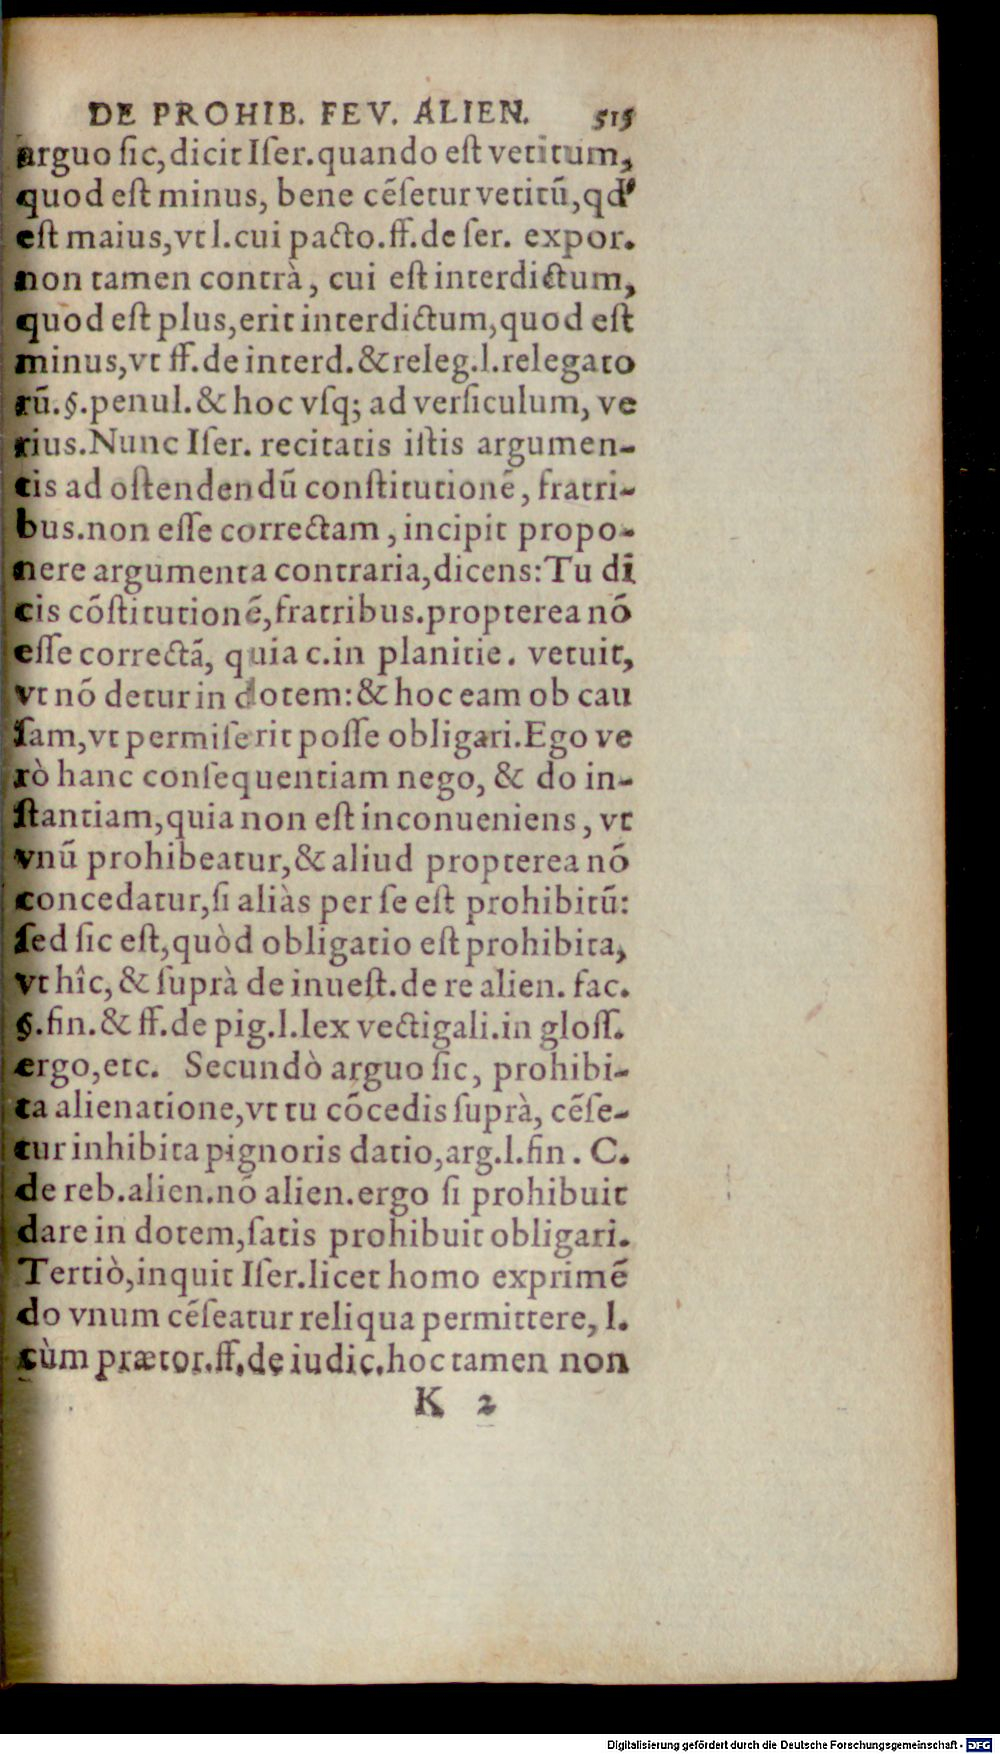 DE PROHIB. FEV. ALIEN. 515
arguo ſic, dicit Iſer. quando eſt vetitum,
quod eſt minus, bene cẽſetur vetitũ, qd'
eſt maius, vt l. cui pacto. ff. de ſer. expor.
non tamen contrà, cui eſt interdictum,
quod eſt plus, erit interdictum, quod eſt
minus, vt ff. de interd. & releg. l. relegato
rũ. §. penul. & hoc vſq; ad verſiculum, ve
rius. Nunc Iſer. recitatis iſtis argumen-
tis ad oſtendendũ conſtitutionẽ, fratri-
bus. non eſſe correctam, incipit propo-
nere argumenta contraria, dicens: Tu di
cis cõſtitutionẽ, fratribus. propterea nõ
eſſe correctã, quia c. in planitie. vetuit,
vt nõ detur in dotem: & hoc eam ob cau
ſam, vt permiſerit poſſe obligari. Ego ve
rò hanc conſequentiam nego, & do in-
ſtantiam, quia non eſt inconueniens, vt
vnũ prohibeatur, & aliud propterea nõ
concedatur, ſi aliàs per ſe eſt prohibitũ:
ſed ſic eſt, quòd obligatio eſt prohibita,
vt hîc, & ſuprà de inueſt. de re alien. fac.
§. fin. & ff. de pig. l. lex vectigali. in gloſſ.
ergo, etc. Secundò arguo ſic, prohibi-
ta alienatione, vt tu cõcedis ſuprà, cẽſe-
tur inhibita pignoris datio, arg. l. fin. C.
de reb. alien. nõ alien. ergo ſi prohibuit
dare in dotem, ſatis prohibuit obligari.
Tertiò, inquit Iſer. licet homo exprimẽ
do vnum cẽſeatur reliqua permittere, l.
cùm prætor. ff. de iudic. hoc tamen non
K 2
Digitalisierung gefördert durch die Deutsche Forschungsgemeinschaft - DFG